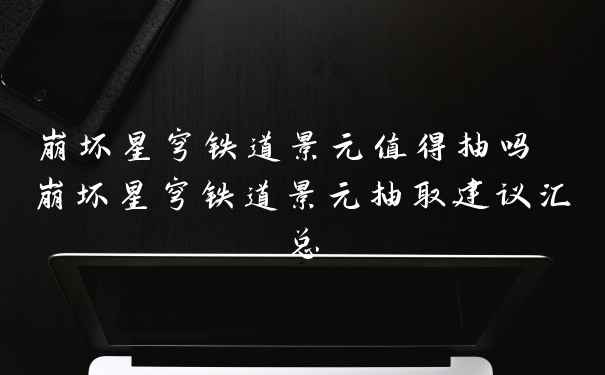 崩坏星穹铁道景元值得抽吗
崩坏星穹铁道景元抽取建议汇
总